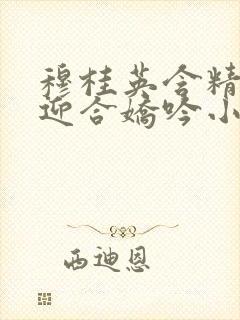 穆桂英含精
迎合娇吟小
西迪恩